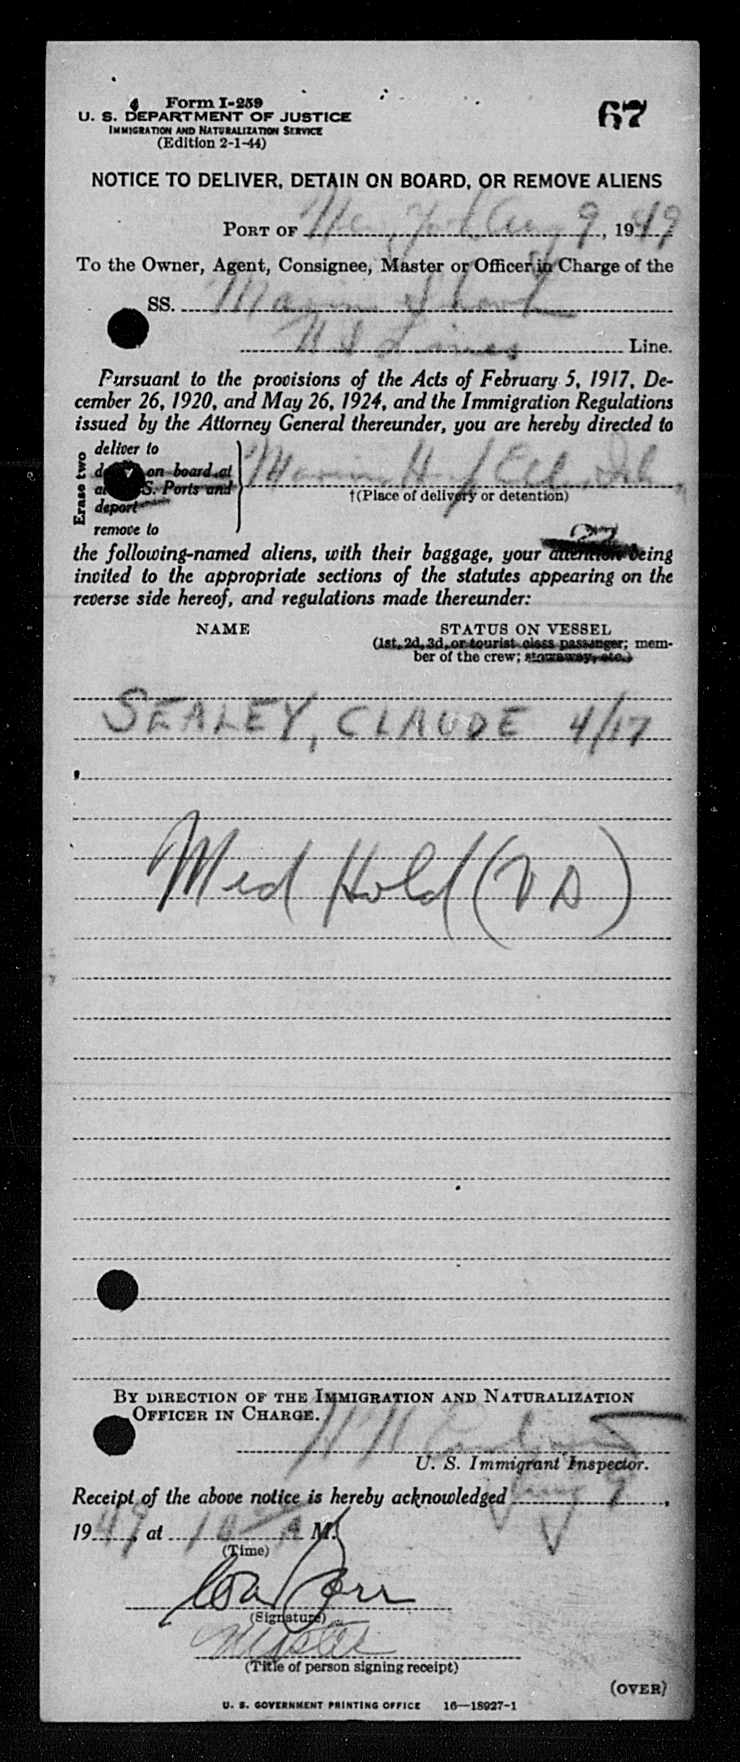 4 Form I-259
67
U. S. DEPARTMENT OF JUSTICE
IMMIGRATION AND NATURALIZATION SERVICE
(Edition 2-1-44)
NOTICE TO DELIVER, DETAIN ON BOARD, OR REMOVE ALIENS
PORT OF New York Aug 9, 1949
To the Owner, Agent, Consignee, Master or Officer in Charge of the
SS. Marine
U S Lines Line.
Pursuant to the provisions of the Acts of February 5, 1917, De-
cember 26, 1920, and May 26, 1924, and the Immigration Regulations
issued by the Attorney General thereunder, you are hereby directed to
Erase two
deliver to
on board at
S. Ports and
deport
remove to
Marine Ellis Isl.
†(Place of delivery or detention)
the following-named aliens, with their baggage, your attention being
invited to the appropriate sections of the statutes appearing on the
reverse side hereof, and regulations made thereunder:
NAME STATUS ON VESSEL
(1st, 2d, 3d, or tourist class passenger; mem-
ber of the crew; stowaway, etc.)
SEALEY, CLAUDE 4/17
Med Hold (VD)
BY DIRECTION OF THE IMMIGRATION AND NATURALIZATION
OFFICER IN CHARGE.
U. S. Immigrant Inspector.
Receipt of the above notice is hereby acknowledged Aug 9,
1949, at 10 A M.
(Time)
(Signature)
Master
(Title of person signing receipt)
(OVER)
U. S. GOVERNMENT PRINTING OFFICE 16—18927-1